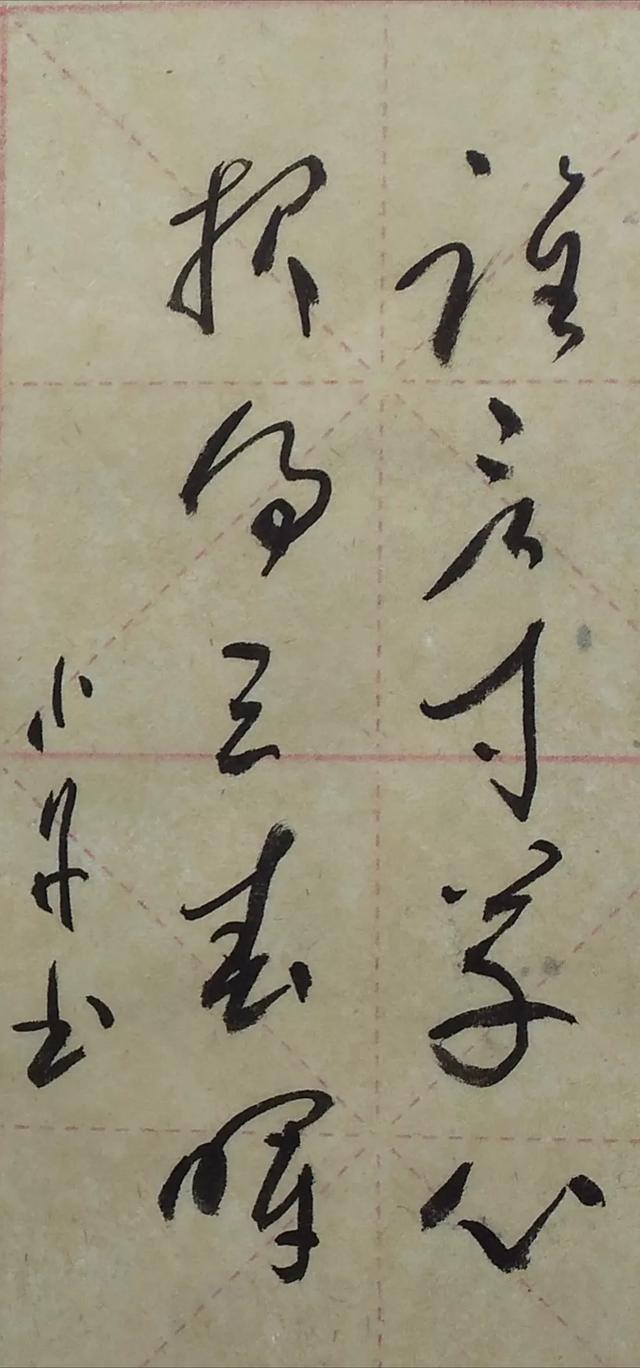 谁言寸草心
报得三春晖
小书